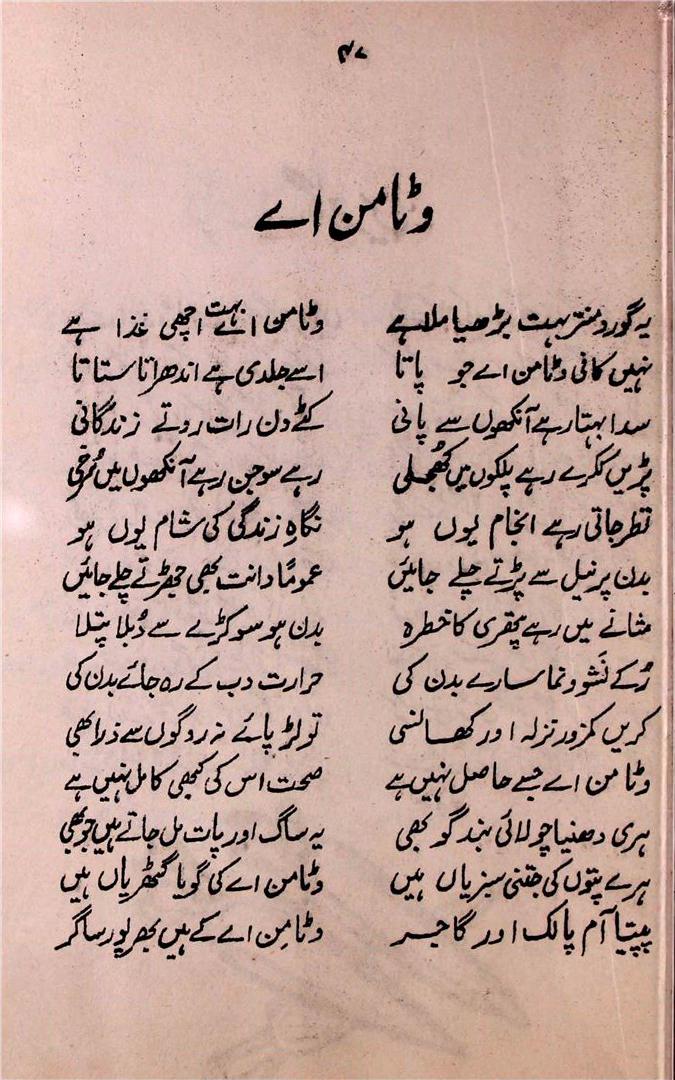 ۴۷
وٹامن اے
یہ گورو منتر بہت بڑھیا ملا ہے وٹامن اے بہت اچھی غذا ہے
نہیں کافی وٹامن اے جو پاتا اسے جلدی ہے اندھراتا ستاتا
سدا بہتا رہے آنکھوں سے پانی کٹے دن رات روتے زندگانی
پڑیں ککرے رہے پلکوں میں کھُجلی رہے سوجن رہے آنکھوں میں سُرخی
نظر جاتی رہے انجام یوں ہو نگاہِ زندگی کی شام یوں ہو
بدن پر نیل سے پڑتے چلے جائیں عموماً دانت بھی جھڑتے چلے جائیں
مثانے میں رہے پتھری کا خطرہ بدن ہو سوکڑے سے دُبلا پتلا
رُکے نَشو و نما سارے بدن کی حرارت دب کے رہ جائے بدن کی
کریں کمزور نزلہ اور کھانسی تو لڑ پائے نہ روگوں سے ذرا بھی
وٹامن اے جسے حاصل نہیں ہے صحت اس کی کبھی کامل نہیں ہے
ہری دھنیا چولائی بند گوبھی یہ ساگ اور پات مل جاتے ہیں جو بھی
ہرے پتوں کی جتنی سبزیاں ہیں وٹامن اے کی گویا گٹھریاں ہیں
پپیتا آم پالک اور گاجر وٹامِن اے کے ہیں بھرپور ساگر